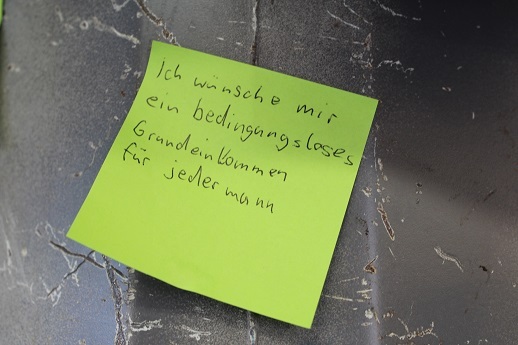 Ich wünsche mir
ein bedingungsloses
Grundeinkommen
für jedermann